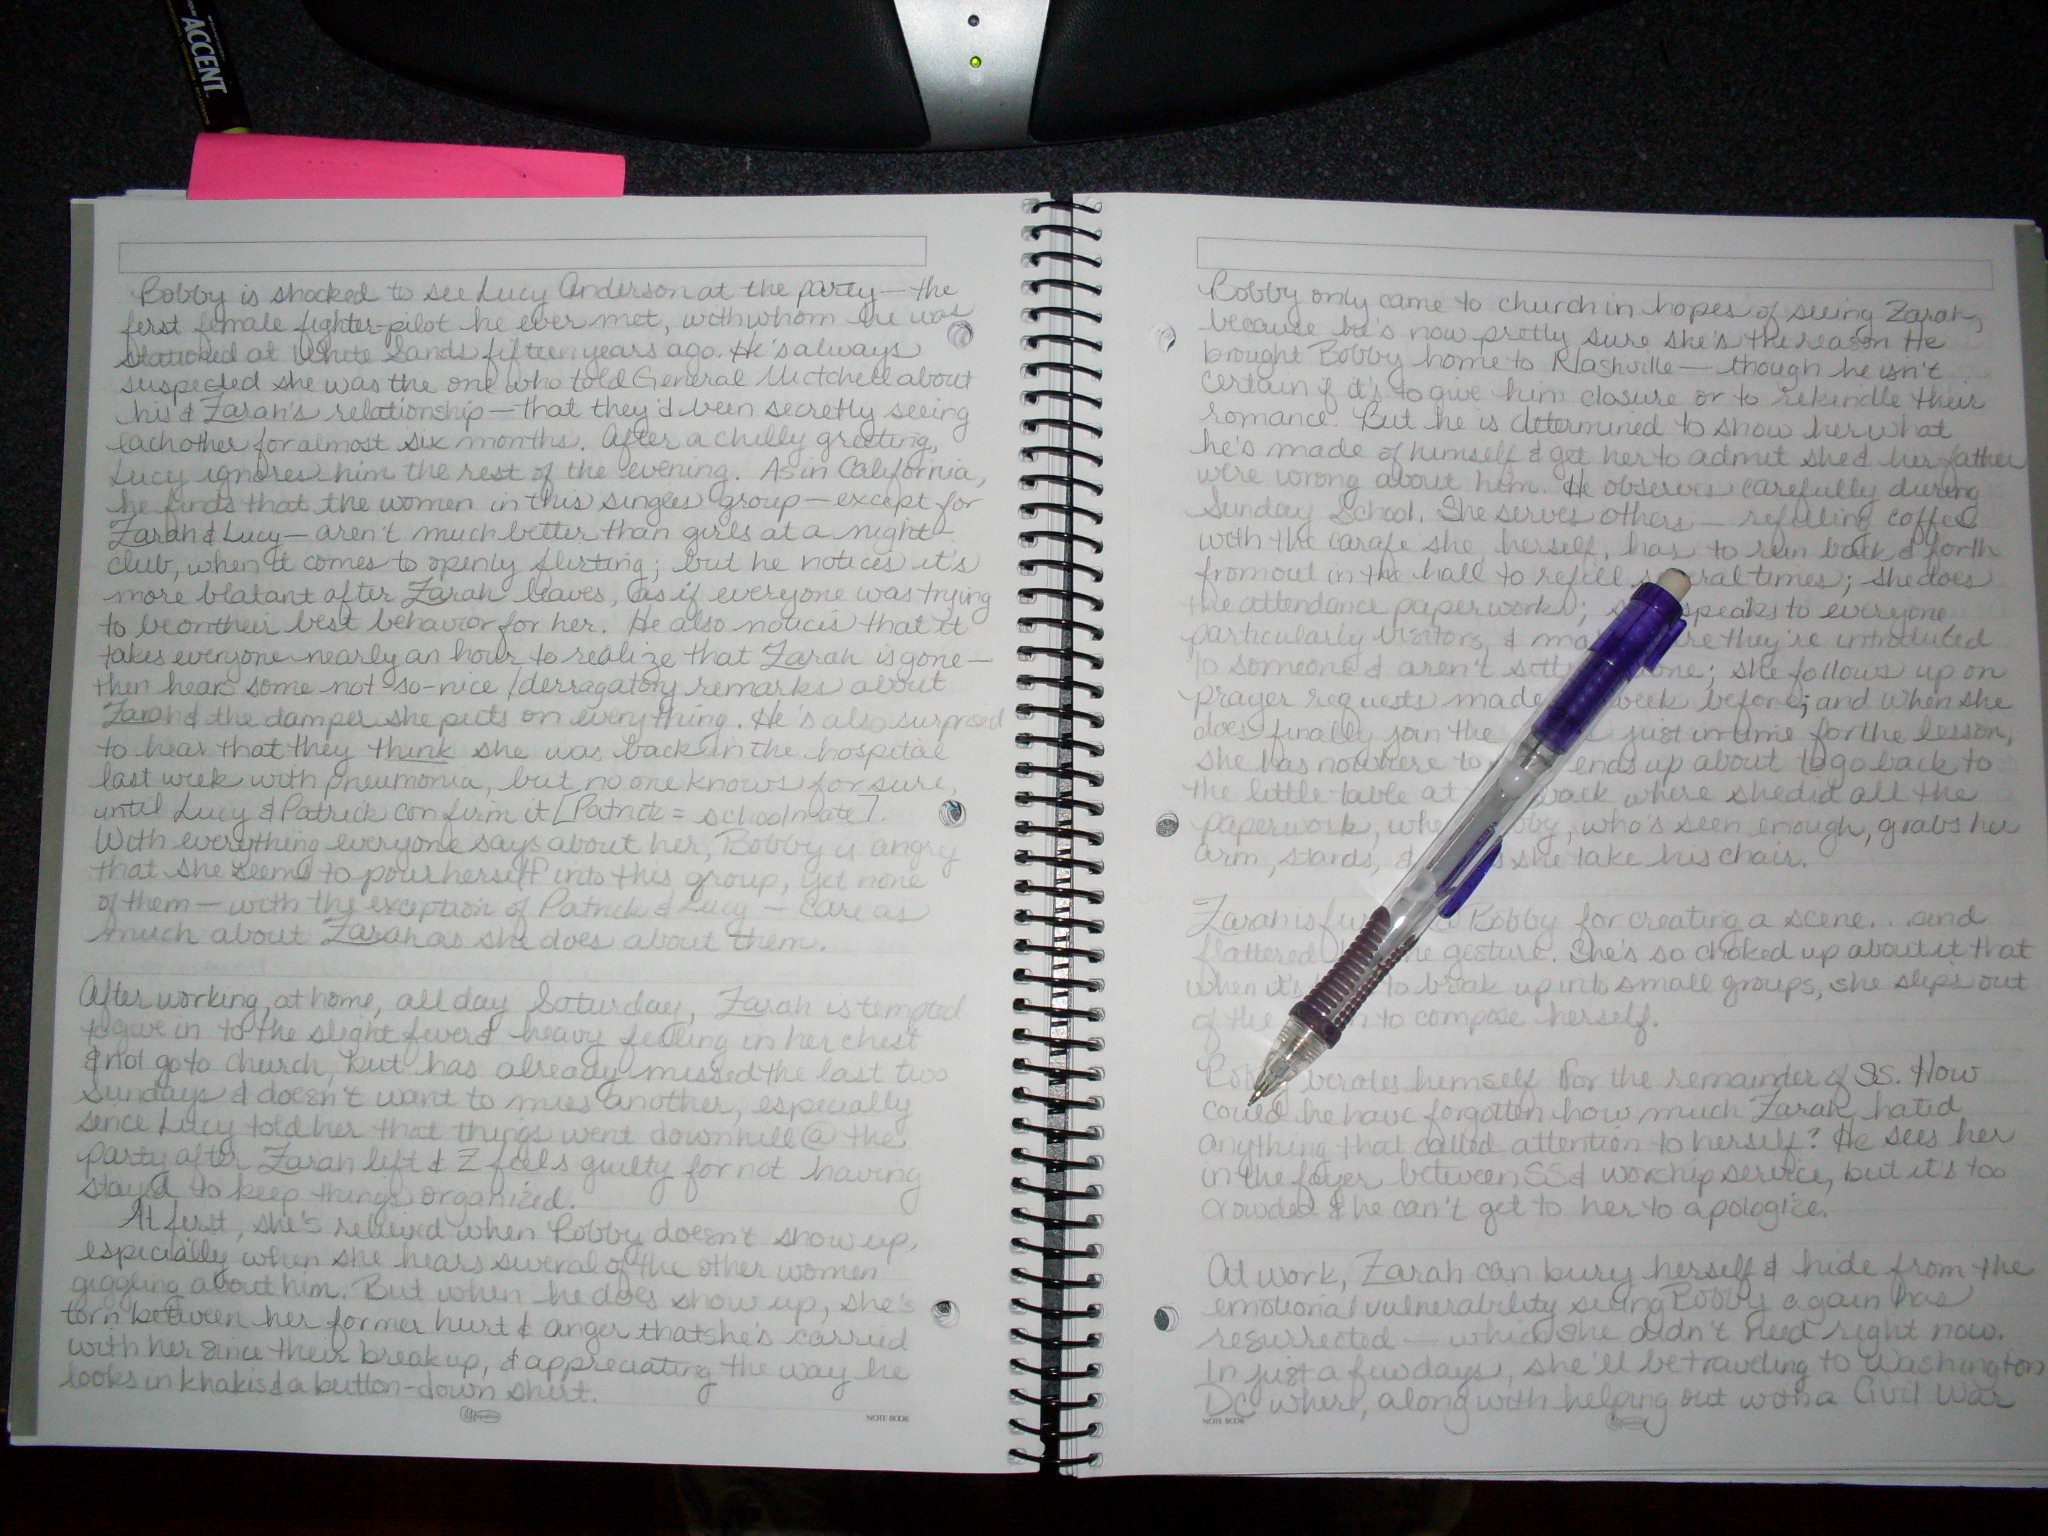 ACCENT
Bobby is shocked to see Lucy Anderson at the party — the
first female fighter-pilot he ever met, with whom he was
stationed at White Sands fifteen years ago. He's always
suspected she was the one who told General Mitchell about
his & Zarah's relationship — that they'd been secretly seeing
eachother for almost six months. After a chilly greeting,
Lucy ignores him the rest of the evening. As in California,
he finds that the women in this singles group — except for
Zarah & Lucy — aren't much better than girls at a night-
club, when it comes to openly flirting; but he notices it's
more blatant after Zarah leaves, as if everyone was trying
to be on their best behavior for her. He also notices that it
takes everyone nearly an hour to realize that Zarah is gone —
then hears some not-so-nice/derragatory remarks about
Zarah & the damper she puts on everything. He's also surprised
to hear that they think she was back in the hospital
last week with pneumonia, but no one knows for sure,
until Lucy & Patrick confirm it [Patrick = schoolmate].
With everything everyone says about her, Bobby is angry
that she seems to pour herself into this group, yet none
of them — with the exception of Patrick & Lucy — care as
much about Zarah as she does about them.
After working, at home, all day Saturday, Zarah is tempted
to give in to the slight fever & heavy feeling in her chest
& not go to church, but has already missed the last two
Sundays & doesn't want to miss another, especially
since Lucy told her that things went downhill @ the
party after Zarah left & Z feels guilty for not having
stayed to keep things organized.
At first, she's relieved when Bobby doesn't show up,
especially when she hears several of the other women
giggling about him. But when he does show up, she's
torn between her former hurt & anger that she's carried
with her since their breakup, & appreciating the way he
looks in khakis & a button-down shirt.
NOTE BOOK
Bobby only came to church in hopes of seeing Zarah,
because he's now pretty sure she's the reason He
brought Bobby home to Nashville — though he isn't
certain if it's to give him closure or to rekindle their
romance. But he is determined to show her what
he's made of himself & get her to admit she & her father
were wrong about him. He observes carefully during
Sunday School. She serves others — refilling coffee
with the carafe she, herself, has to run back & forth
from out in the hall to refill several times; she does
the attendance paperwork; speaks to everyone
particularly visitors, & they're introduced
to someone & aren't; she follows up on
prayer requests made week before; and when she
does finally join the just in time for the lesson,
she has nowhere to ends up about to go back to
the little table at back where she did all the
paperwork, when Bobby, who's seen enough, grabs her
arm, stands, & she take his chair.
Zarah is Bobby for creating a scene... and
flattered gesture. She's so choked up about it that
when it's to break up into small groups, she slips out
of the to compose herself.
Bobby berates himself for the remainder of SS. How
could he have forgotten how much Zarah hated
anything that called attention to herself? He sees her
in the foyer between SS & worship service, but it's too
crowded & he can't get to her to apologize.
At work, Zarah can bury herself & hide from the
emotional vulnerability seeing Bobby again has
resurrected — which she didn't need right now.
In just a few days, she'll be traveling to Washington
DC where, along with helping out with a Civil War
NOTE BOOK